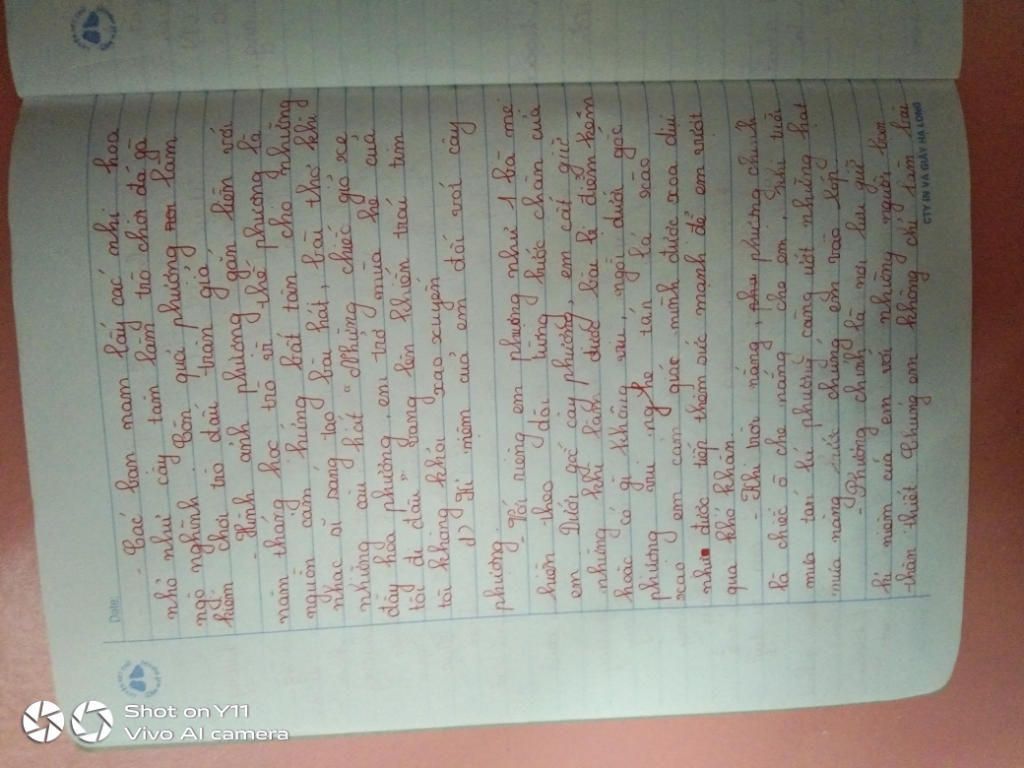 Date:
- Các bạn nam lấy các nhị hoa
nhỏ như cây tăm làm trò chơi đá gà
ngộ nghĩnh. Còn quả phượng làm
kiếm chơi trò đấu trận giả,
- Hình ảnh phượng gắn liền với
năm tháng học trò vì thế phượng là
nguồn cảm hứng bất tận cho những
nhạc sĩ sáng tạo bài hát, bài thơ khi
những câu hát " Những chiếc giỏ xe
đầy hoa phượng, em trở mùa hè của
tôi đi đâu" vang lên khiến trái tim
tôi không khỏi xao xuyến
d) Kỉ niệm của em đối với cây
phượng
- Với riêng em phượng như 1 bà mẹ
hiền theo dõi từng bước chân của
em. Dưới gốc cây phượng, em cất giữ
những khi lắm được bài bị điểm kém
hoặc có gì không vui, ngồi dưới gốc
phượng vui nghe tán lá xào
xạc em cảm giác mình được xoa dịu
như được tiếp thêm sức mạnh để em vượt
qua khó khăn.
- Khi trời nắng, phư phượng chính
là chiếc ô che nắng che em, Khi trời
mưa tán lá phượng cũng ướt những hạt
mưa nặng chúng em vào lớp
- Phượng chính là nơi lưu giữ
kỉ niệm của em với những người bạn
thân thiết Chúng em không chỉ làm bài
CTY IN VÀ GIẤY HẠ LONG
Shot on Y11
Vivo AI camera